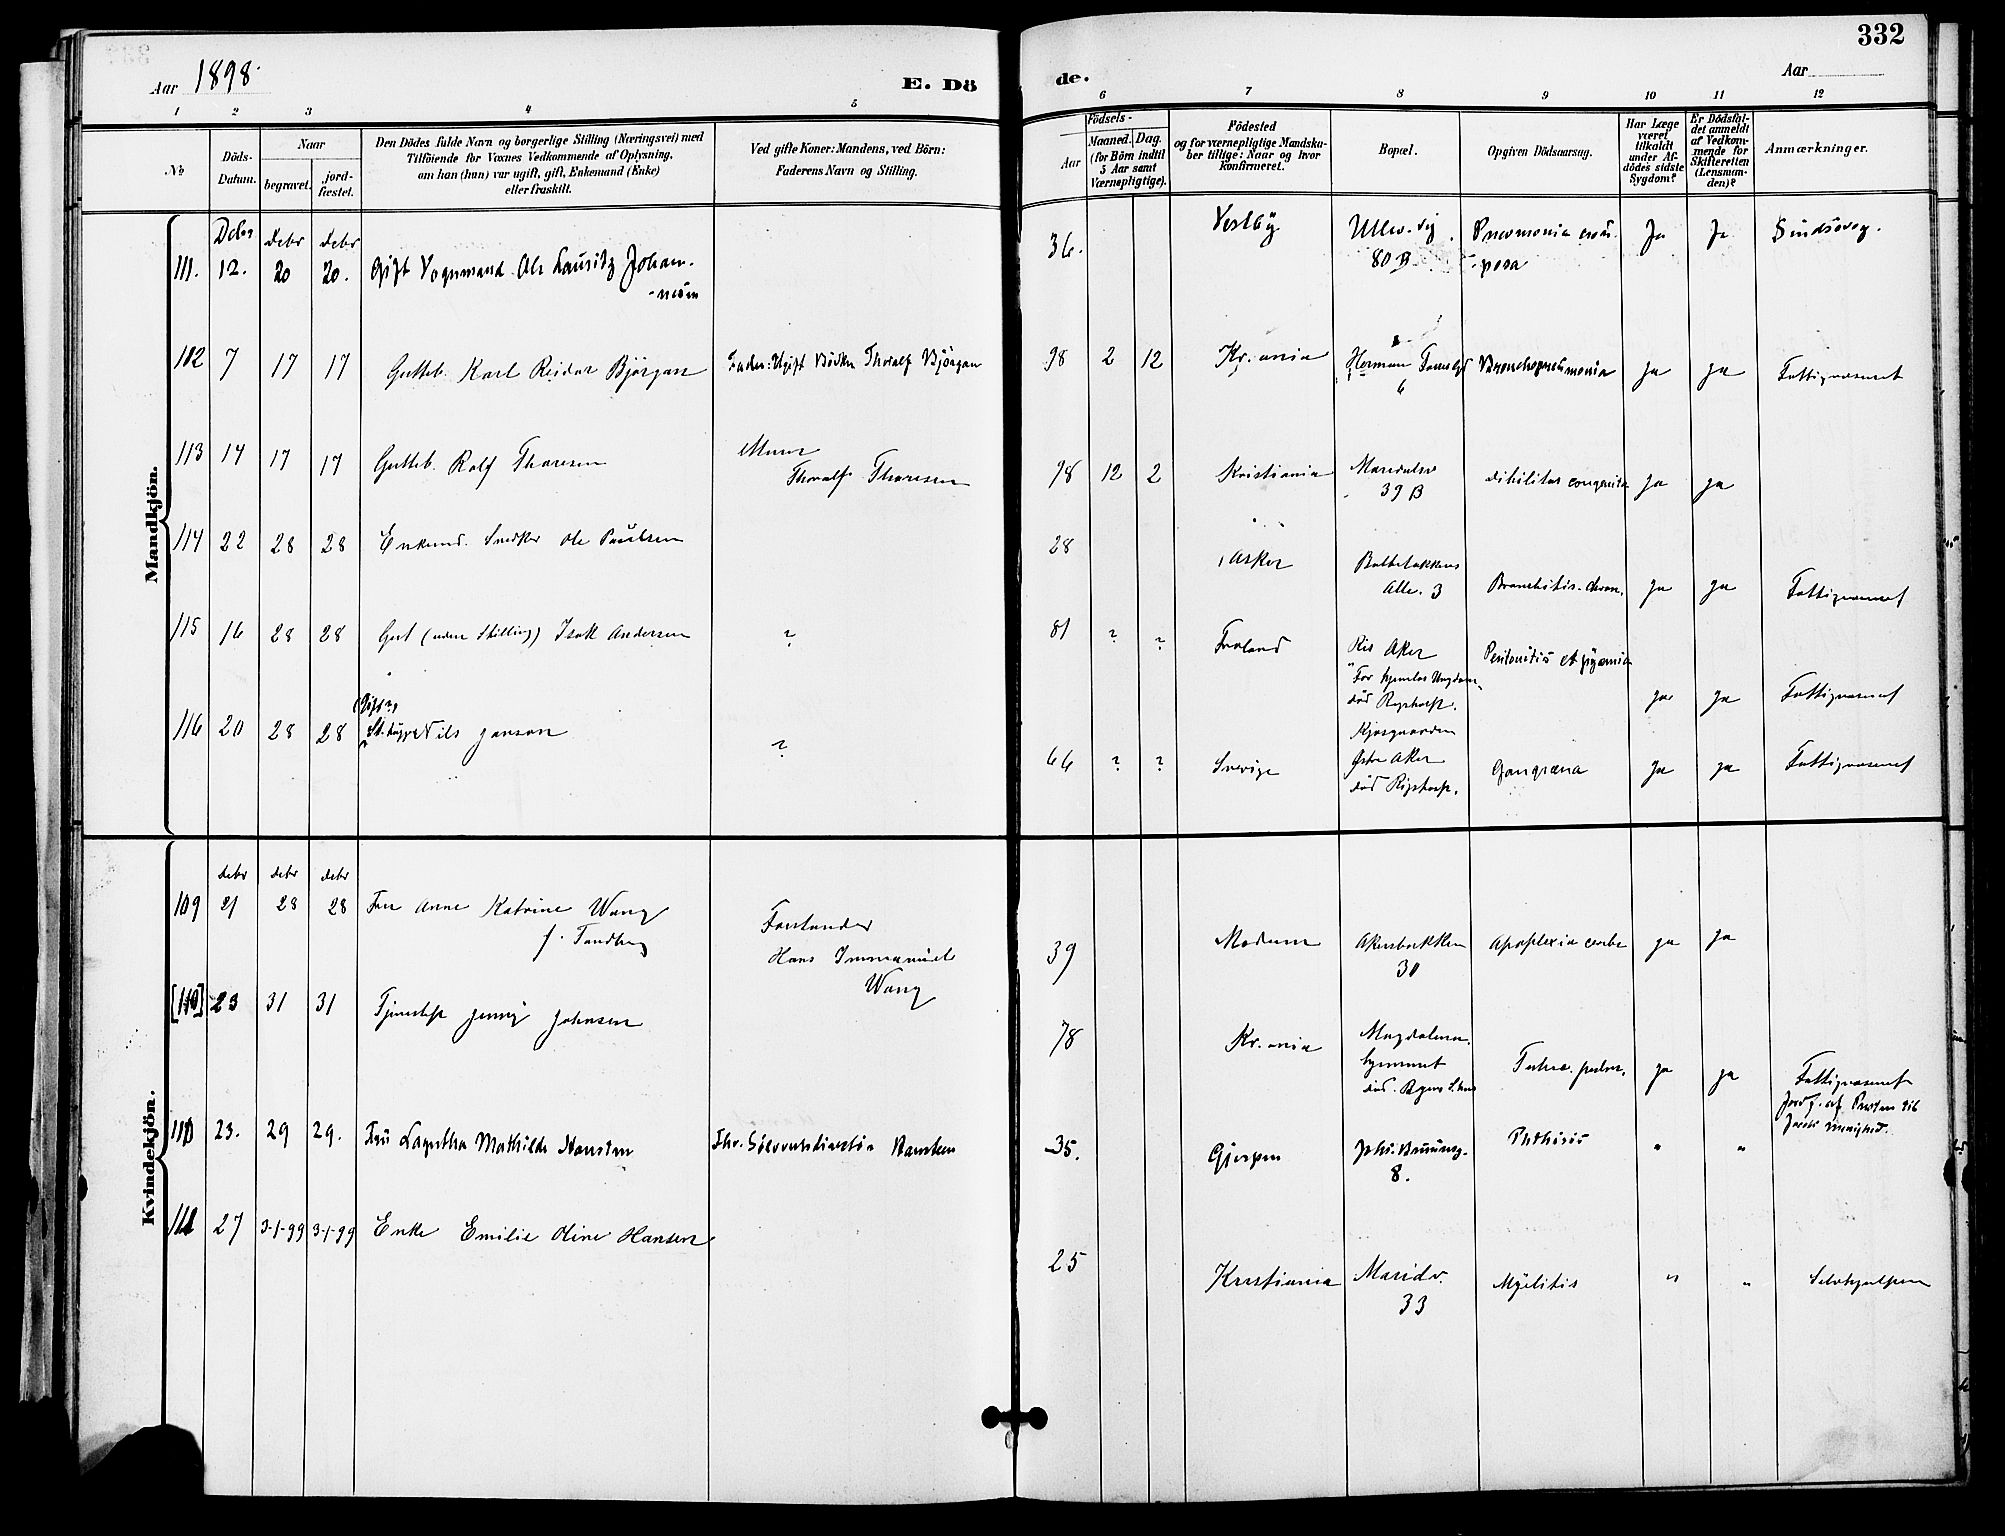 332
Aar 1898.
E. Döde.
Aar
1 2 3 4 5 6 7 8 9 10 11 12
No
Döds-
Datum.
Naar
begravet.
jord-
fæstet.
Den Dödes fulde Navn og borgerlige Stilling (Næringsvei) med
Tilföiende for Voxnes Vedkommende af Oplysning,
om han (hun) var ugift, gift, Enkemand (Enke)
eller fraskilt.
Ved gifte Koner: Mandens, ved Börn:
Faderens Navn og Stilling.
Födsels-
Aar
Maaned. Dag.
(for Börn indtil
5 Aar samt
Værnepligtige).
Födested
og for værnepligtige Mandska-
ber tillige: Naar og hvor
konfirmeret.
Bopæl.
Opgiven Dödsaarsag.
Har Læge
været
tilkaldt
under Af-
dödes sidste
Sygdom?
Er Dödsfal-
det anmeldt
af Vedkom-
mende for
Skifteretten
(Lensman-
den)?
Anmærkninger.
Mandkjön.
Debr Debr Debr
111. 12. 20 20. Gift Vognmand Ole Lauritz Johan-
36. Vestby Ullev.vej Pneumonia Ja Ja Sindssveg.
80 B -posa
112 7 17 17 Gutteb. Karl Reidar Björgan Fader: Ugift Bödker Thoralf Björgan 98 2 12 Kr.ania Herman Bronchopneumonia Ja Ja Fattigvæsenet
6
113 14 17 17 Gutteb. Rolf Thoresen Murer
Thoralf Thoresen 98 12 2 Kristiania Maridalsv
39 B debilitas congenita Ja Ja
114 22 28 28 Enkemd. Snedker Ole Paulsen 28 Asker Balbebakkens
Alle. 3 Bronchitis chron. Ja Ja Fattigvæsenet
115 16 28 28 Gut (uden Stilling) Isak Andersen ? 81 ? ? Froland Ris Aker
For hjemløs Ungdom
död Rigshosp. Peritonitis et pyæmia Ja Ja Fattigvæsenet
116 20 28 28 Nils Janson ? 66 ? ? Sverige
Østre Aker
död Rigshosp. Gangræna Ja Ja Fattigvæsenet
Kvindekjön.
debr debr debr
109 21 28 28 Fru Anne Katrine Wang
f. Tandberg
Forstander
Hans Immanuel
Wang
39 Modum Akersbakken
30 Apoplexia cerebr Ja Ja
[110] 23 31 31 Tjenestep Jenny Johnsen 78 Kr.ania Magdalena
hjemmet
Tuberc. pulm. Ja Ja Fattigvæsenet
Jordf. af Presten til
Jacobs Menighed.
110 23. 29 29. Fru Lagertha Mathilde Hansteen Fhv. Sölvverksdirektör Hansteen 35. Gjerpen Johs. Bruunsg.
8. Phthisis " "
111 27 3-1-99 3-1-99 Enke Emilie Oline Hansen 25 Kristiania Maridv.
33 Myelitis " " Selvhjælpen